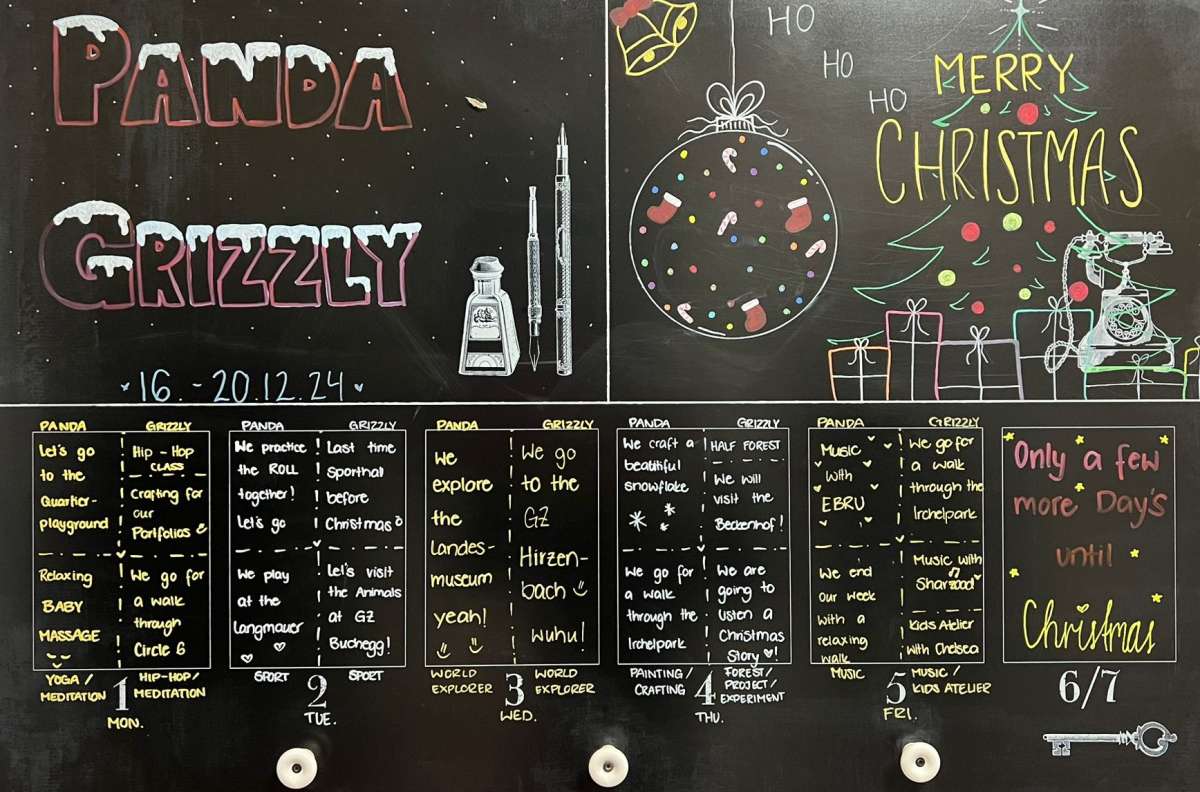 PANDA
GRIZZLY
16.-20.12.24
HO
HO
HO
MERRY
CHRISTMAS
PANDA
Let's go
to the
Quartier-
playground
Relaxing
BABY
MASSAGE
YOGA /
MEDITATION
GRIZZLY
Hip-Hop
CLASS
Crafting for
our
Portfolios
We go for
a walk
through
Circle 6
HIP-HOP/
MEDITATION
1
MON.
PANDA
We practice
the ROLL
together!
Let's go
We play
at the
Langmauer
SPORT
GRIZZLY
Last time
Sporthal
before
Christmas
Let's visit
the Animals
at GZ
Buchegg!
SPORT
2
TUE.
PANDA
We
explore
the
Landes-
museum
yeah!
WORLD
EXPLORER
GRIZZLY
We go
to the
GZ
Hirzen-
bach
wuhu!
WORLD
EXPLORER
3
WED.
PANDA
We craft a
beautiful
snowflake
We go for
a walk
through the
Irchelpark
PAINTING/
CRAFTING
GRIZZLY
HALF FOREST
We will
visit the
Beckenhof!
We are
going to
listen a
Christmas
Story!
FOREST/
PROJECT/
EXPERIMENT
4
THU.
PANDA
Music
with
EBRU
We end
our week
with a
relaxing
walk
MUSIC
GRIZZLY
We go for
a walk
through the
Irchelpark
Music with
Sharzaad
Kids Atelier
with Chelsea
MUSIC/
KIDS ATELIER
5
FRI.
Only a few
more Day's
until
Christmas
6/7